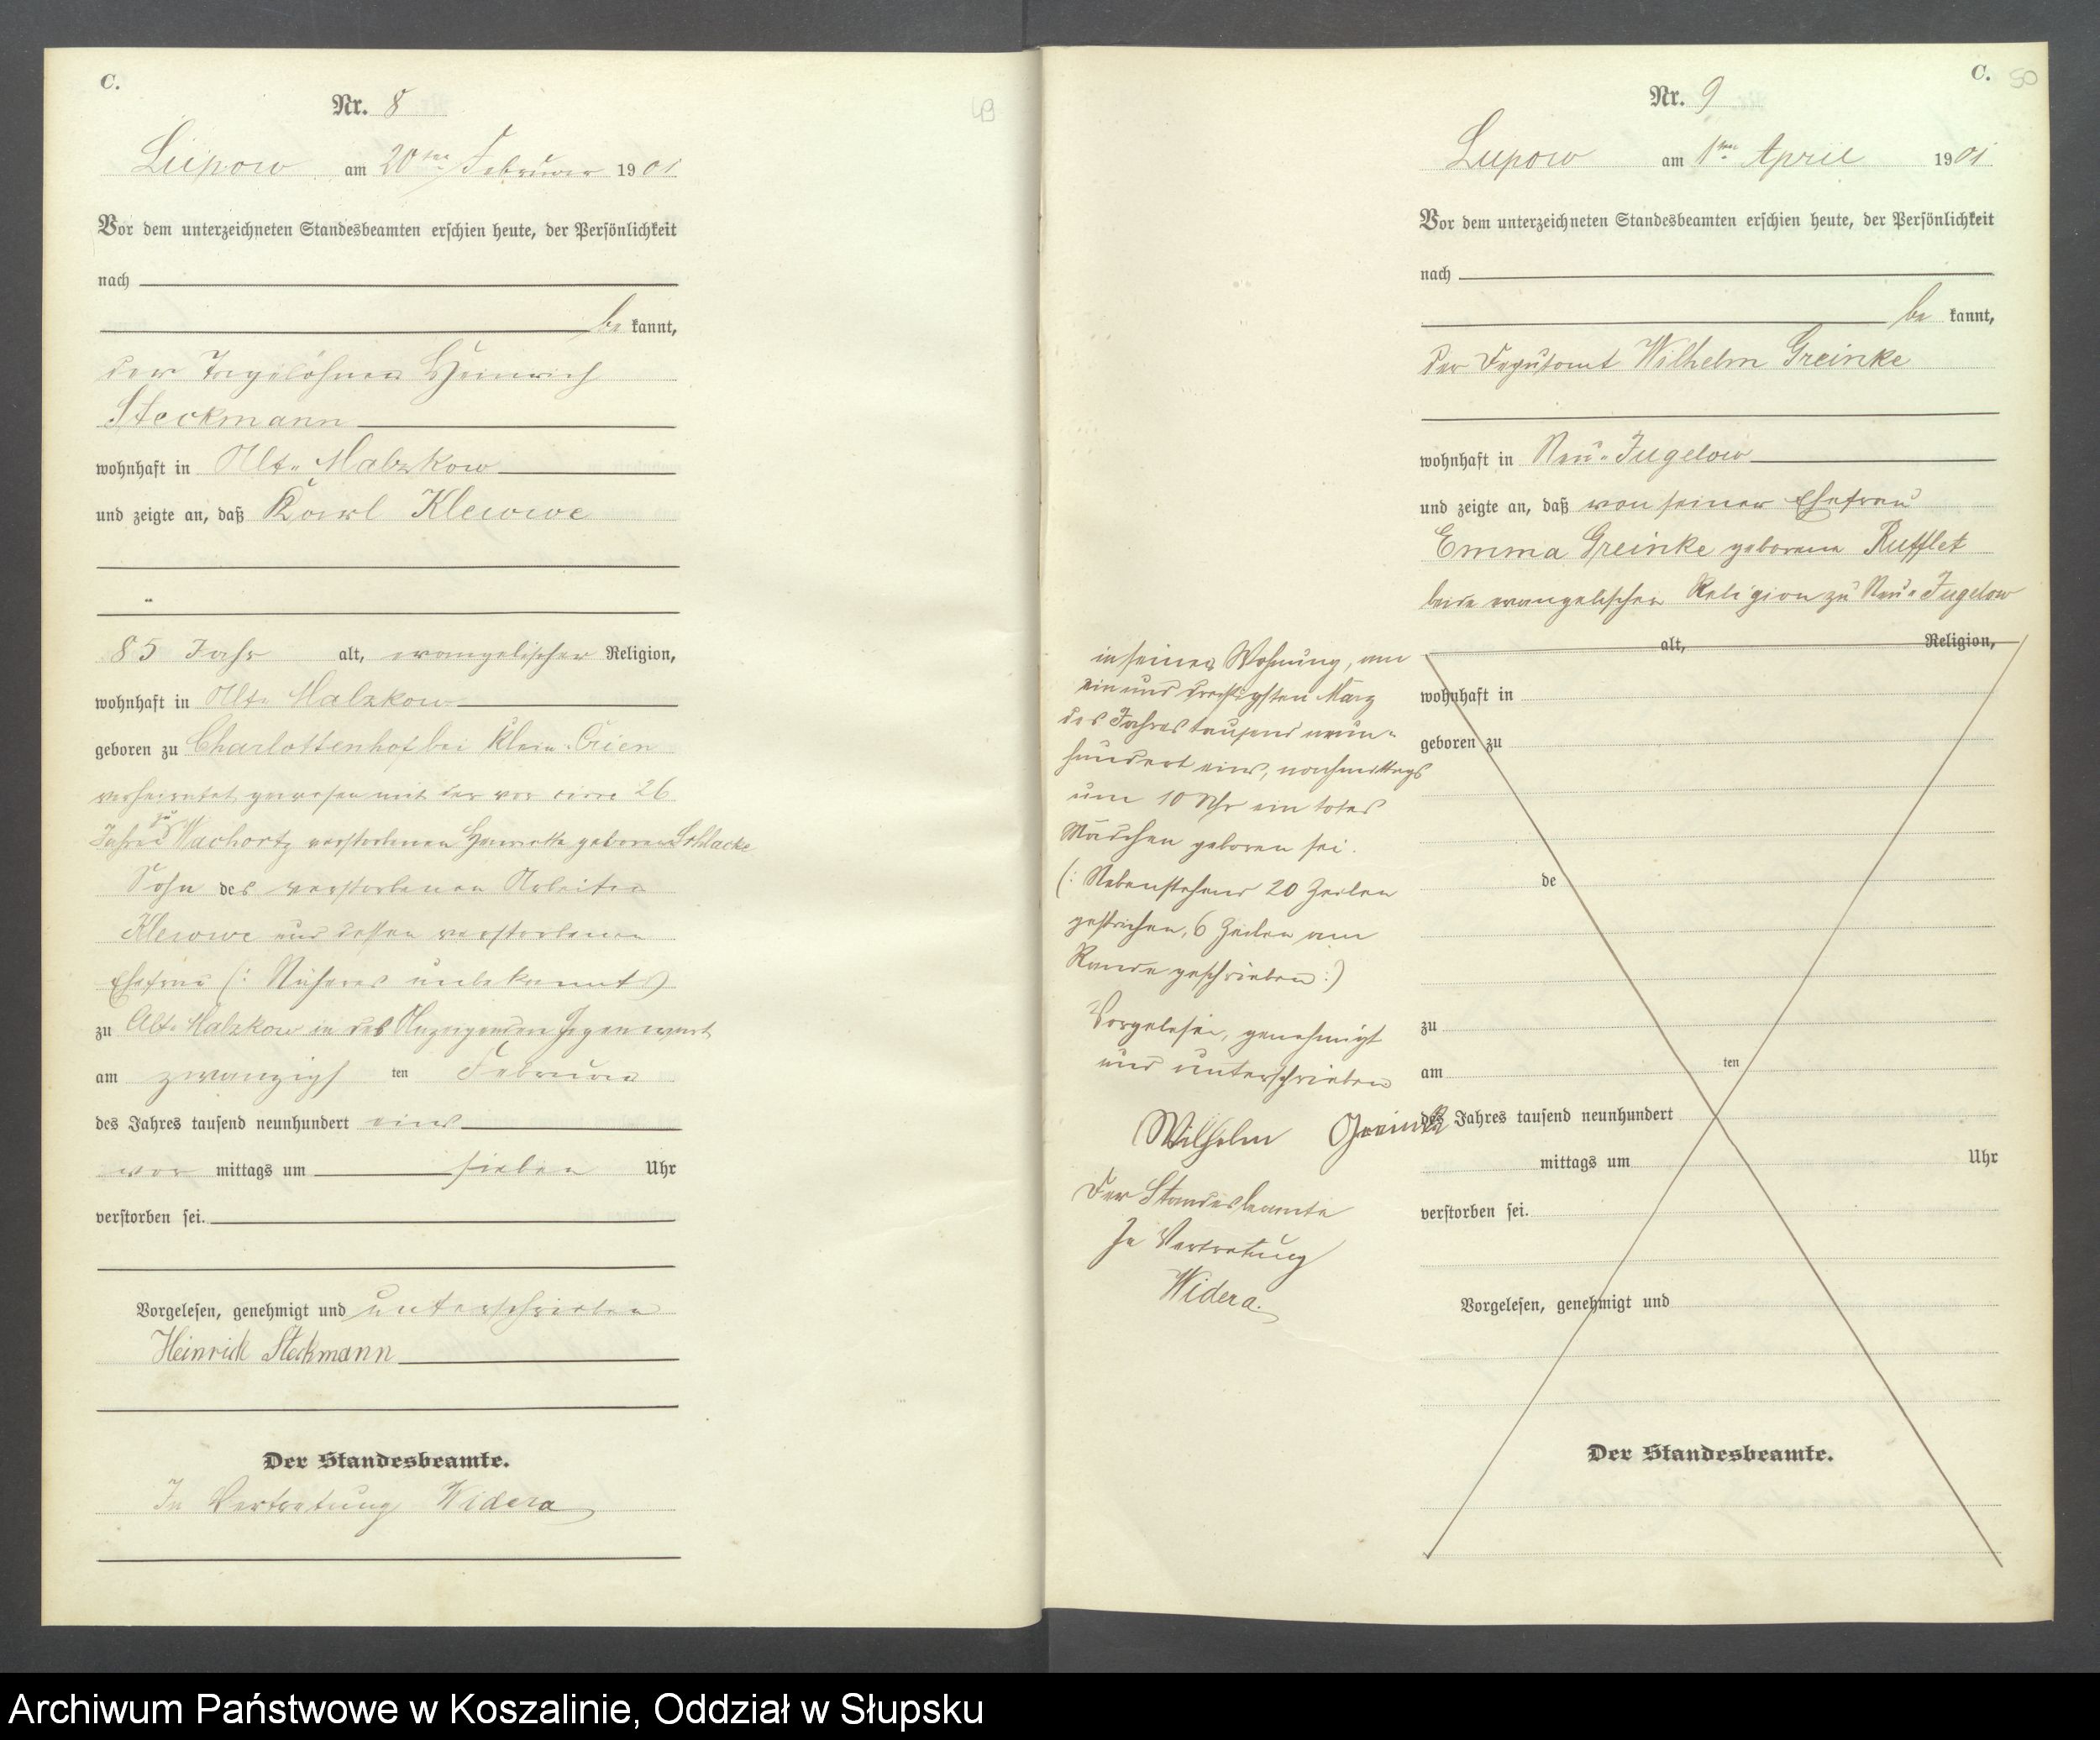 C.
49
Nr. 8
Lupow am 20ten Februar 1901
Vor dem unterzeichneten Standesbeamten erschien heute, der Persönlichkeit
nach
be kannt,
der Tagelöhner Heinrich
Steckmann
wohnhaft in Alt-Malzkow
und zeigte an, daß Karl Klewwe
85 Jahr alt, evangelischer Religion,
wohnhaft in Alt-Malzkow
geboren zu Charlottenhof bei Klein-Crien
verheiratet gewesen mit der vor circa 26
Jahren zu verstorbenen Henriette geborene Schlacke
Sohn des verstorbenen Arbeiter
Klewwe und dessen verstorbenen
Ehefrau (: Näheres unbekannt :)
zu Alt-Malzkow in des Anzeigenden Gegenwart
am zwanzigs ten Februar
des Jahres tausend neunhundert eins
vor mittags um sieben Uhr
verstorben sei.
Vorgelesen, genehmigt und unterschrieben
Heinrich Steckmann
Der Standesbeamte.
In Vertretung Widera
C. 50
Nr. 9
Lupow am 1ten April 1901
Vor dem unterzeichneten Standesbeamten erschien heute, der Persönlichkeit
nach
be kannt,
der Deputant Wilhelm Greinke
wohnhaft in Neu-Jugelow
und zeigte an, daß von seiner Ehefrau
Emma Greinke geborene Rufflet
beide evangelischer Religion zu Neu-Jugelow
alt, Religion,
wohnhaft in
geboren zu
de
zu
am ten
des Jahres tausend neunhundert
mittags um Uhr
verstorben sei.
Vorgelesen, genehmigt und
Der Standesbeamte.
in seiner Wohnung, am
einunddreißigsten März
des Jahres tausend neun-
hundert eins, nachmittags
um 10 Uhr ein totes
Mädchen geboren sei.
(: Nebenstehend 20 Zeilen
gestrichen, 6 Zeilen am
Rande geschrieben :)
Vorgelesen, genehmigt
und unterschrieben
Wilhelm Greinke
Der Standesbeamte
In Vertretung
Widera.
Archiwum Państwowe w Koszalinie, Oddział w Słupsku